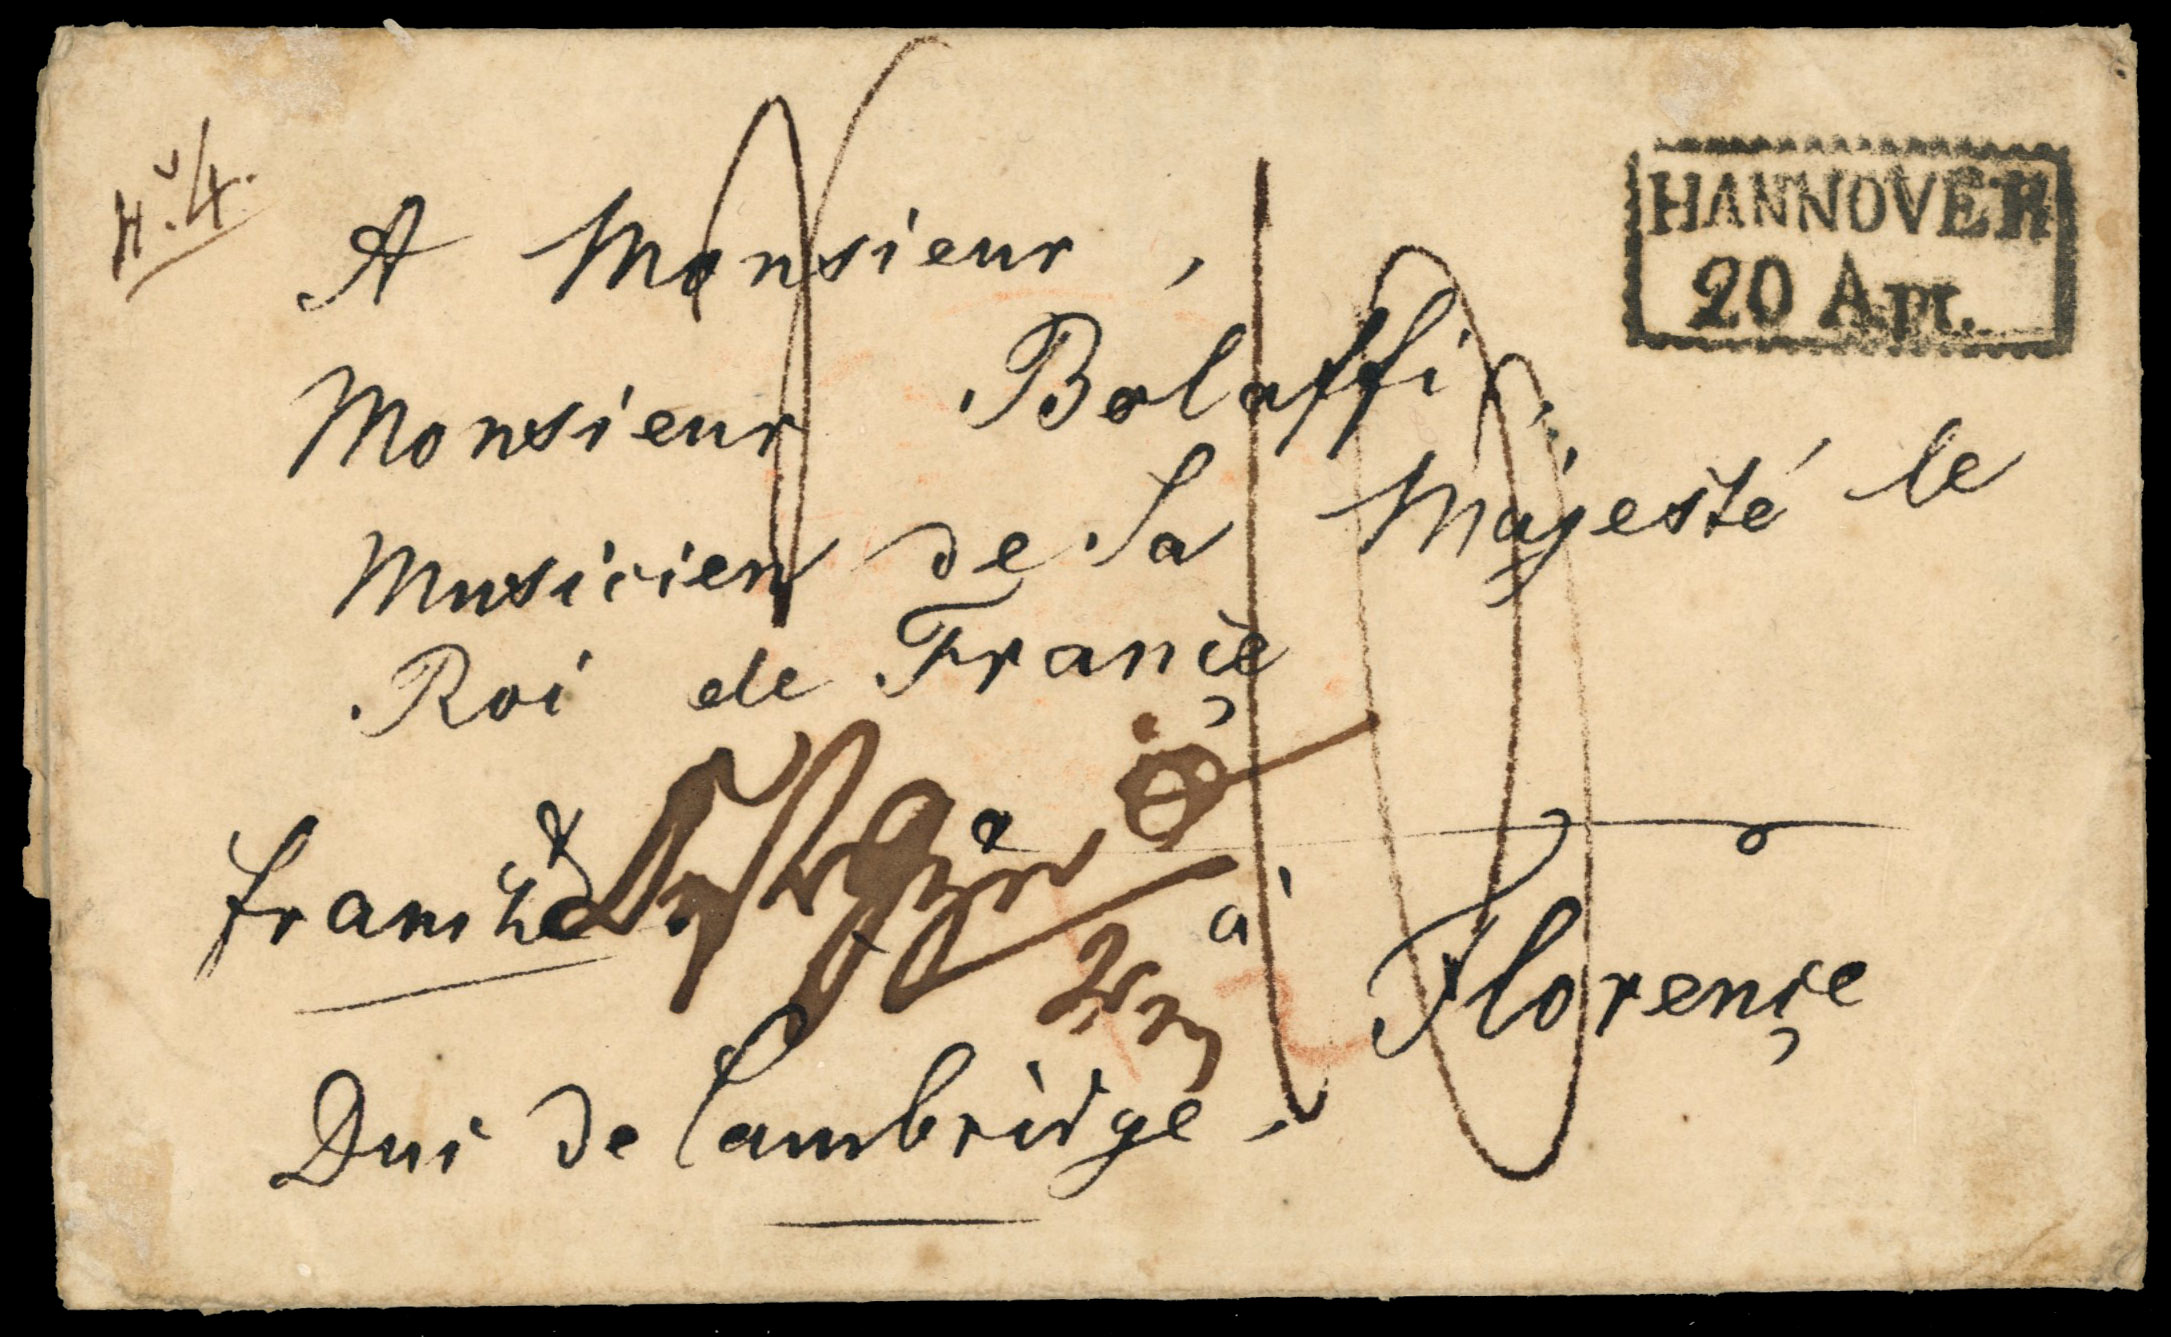 N.º 4.
HANNOVER
20 Apr.
A Monsieur,
Monsieur Bolaffi,
Musicien de Sa Majesté le
Roi de Françe
à Florençe
Duc de Cambridge.